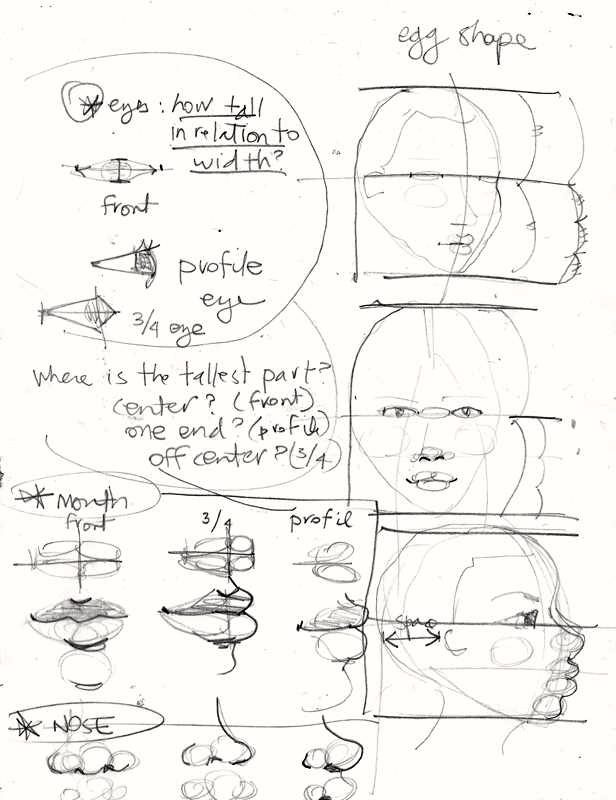 egg shape
* eyes : how tall
in relation to
width?
front
profile
eye
3/4 eye
where is the tallest part?
center? (front)
one end? (profile)
off center? (3/4)
* Mouth
front
3/4
profil
space
* NOSE